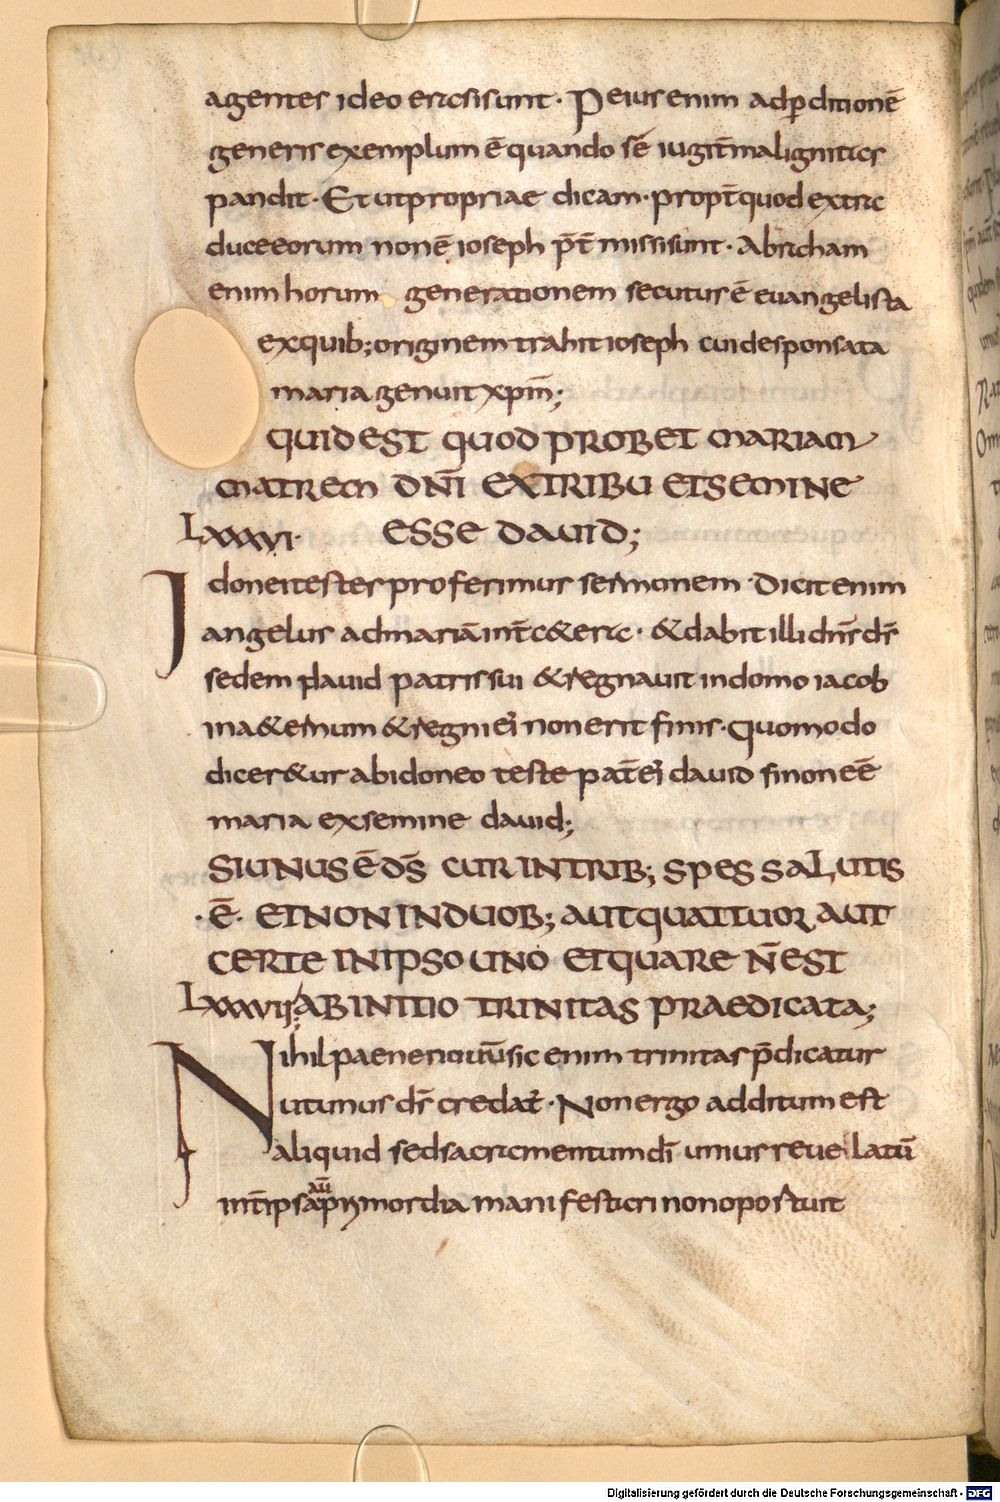 agentes ideo ercsisunt · Peius enim adp̱ditionē
generis exemplum ē quando sē iugit̄ malignitas
pandit · Et ut propriae dicam · propt̄ quod ex tra
duce eorum non ē ioseph p̄t̄ missi sunt · Abraham
enim horum generationem secutus ē euangelista
ex quib; originem trahit ioseph cui desponsata
maria genuit xpm̄;
QUID EST QUOD PROBET MARIAM
MATREM DN̄I EX TRIBU ET SEMINE
LXXXVI· ESSE DAUID;
Idonei testes proferimus sermonem · Dicit enim
angelus ad mariā int̄ c&era · & dabit illi dn̄s ds̄
sedem dauid patris sui & regnauit in domo iacob
in a&ernum & regni ei' non erit finis · Quomodo
dicer&ur ab idoneo teste pat̄ ei' dauid si non eē
maria ex semine dauid;
SI UNUS Ē DS̄ CUR IN TRIB; SPES SALUTIS
· Ē · ET NON IN DUOB; AUT QUATTUOR AUT
CERTE IN IPSO UNO ET QUARE N̄ EST
LXXXVII; AB INITIO TRINITAS PRAEDICATA;
Nihil paene nouūsic enim trinitas p̄dicatur
ut unus ds̄ credat · Non ergo additum est
aliquid sed sacramentum dī unius reuelatū
aū
int̄ ipsa primordia manifestari non oportuit
Digitalisierung gefördert durch die Deutsche Forschungsgemeinschaft - DFG